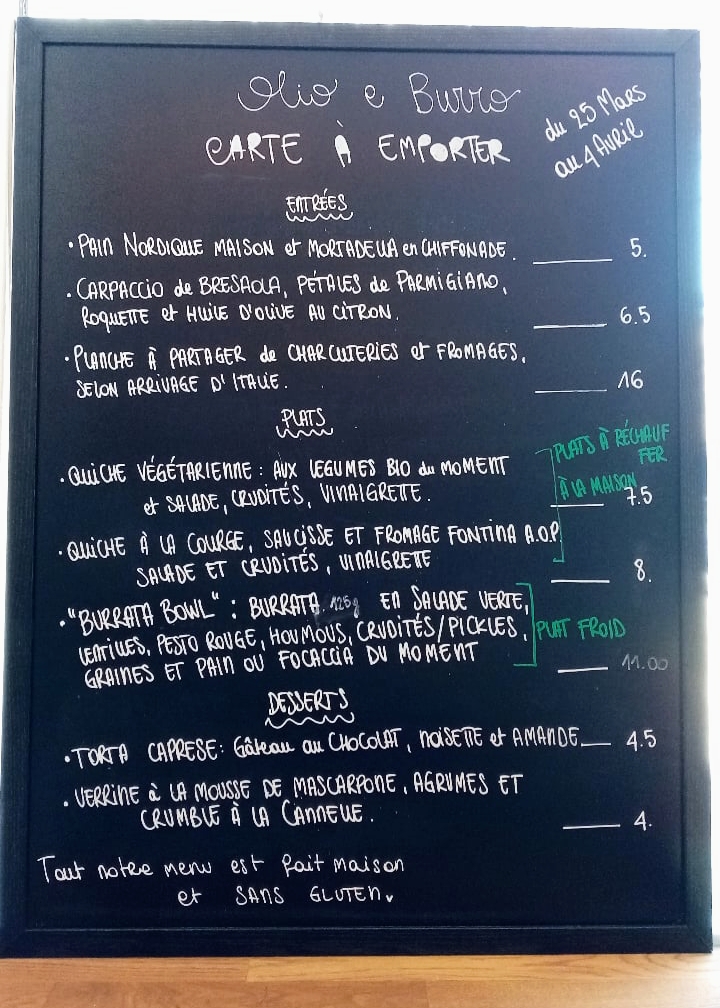 Olio e Burro
CARTE À EMPORTER
du 25 Mars
au 4 Avril
ENTRÉES
• PAIN NORDIQUE MAISON et MORTADELLA en CHIFFONADE. 5.
• CARPACCIO de BRESAOLA, PÉTALES de PARMIGIANO,
ROQUETTE et HUILE D'OLIVE AU CITRON. 6.5
• PLANCHE À PARTAGER de CHARCUTERIES et FROMAGES,
SELON ARRIVAGE D'ITALIE. 16
PLATS
• QUICHE VÉGÉTARIENNE : AUX LEGUMES BIO du MOMENT
et SALADE, CRUDITÉS, VINAIGRETTE. 7.5
• QUICHE À LA COURGE, SAUCISSE ET FROMAGE FONTINA A.O.P
SALADE ET CRUDITÉS, VINAIGRETTE 8.
PLATS À RÉCHAUF
FER
À LA MAISON
• "BURRATA BOWL" : BURRATA 125g EN SALADE VERTE,
LENTILLES, PESTO ROUGE, HOUMOUS, CRUDITÉS/PICKLES,
GRAINES ET PAIN OU FOCACCIA DU MOMENT 11.00
PLAT FROID
DESSERTS
• TORTA CAPRESE : Gâteau au CHOCOLAT, NOISETTE et AMANDE 4.5
• VERRINE à LA MOUSSE DE MASCARPONE, AGRUMES ET
CRUMBLE À LA CANNELLE. 4.
Tout notre menu est fait maison
et SANS GLUTEN